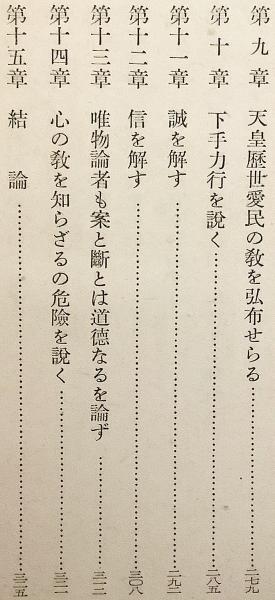 第九章 天皇歷世愛民の敎を弘布せらる……二七九
第十章 下手力行を說く……二八五
第十一章 誠を解す……二九二
第十二章 信を解す……三〇八
第十三章 唯物論者も案と斷とは道德なるを論ず……三一二
第十四章 心の敎を知らざるの危險を說く……三二一
第十五章 結論……三二五